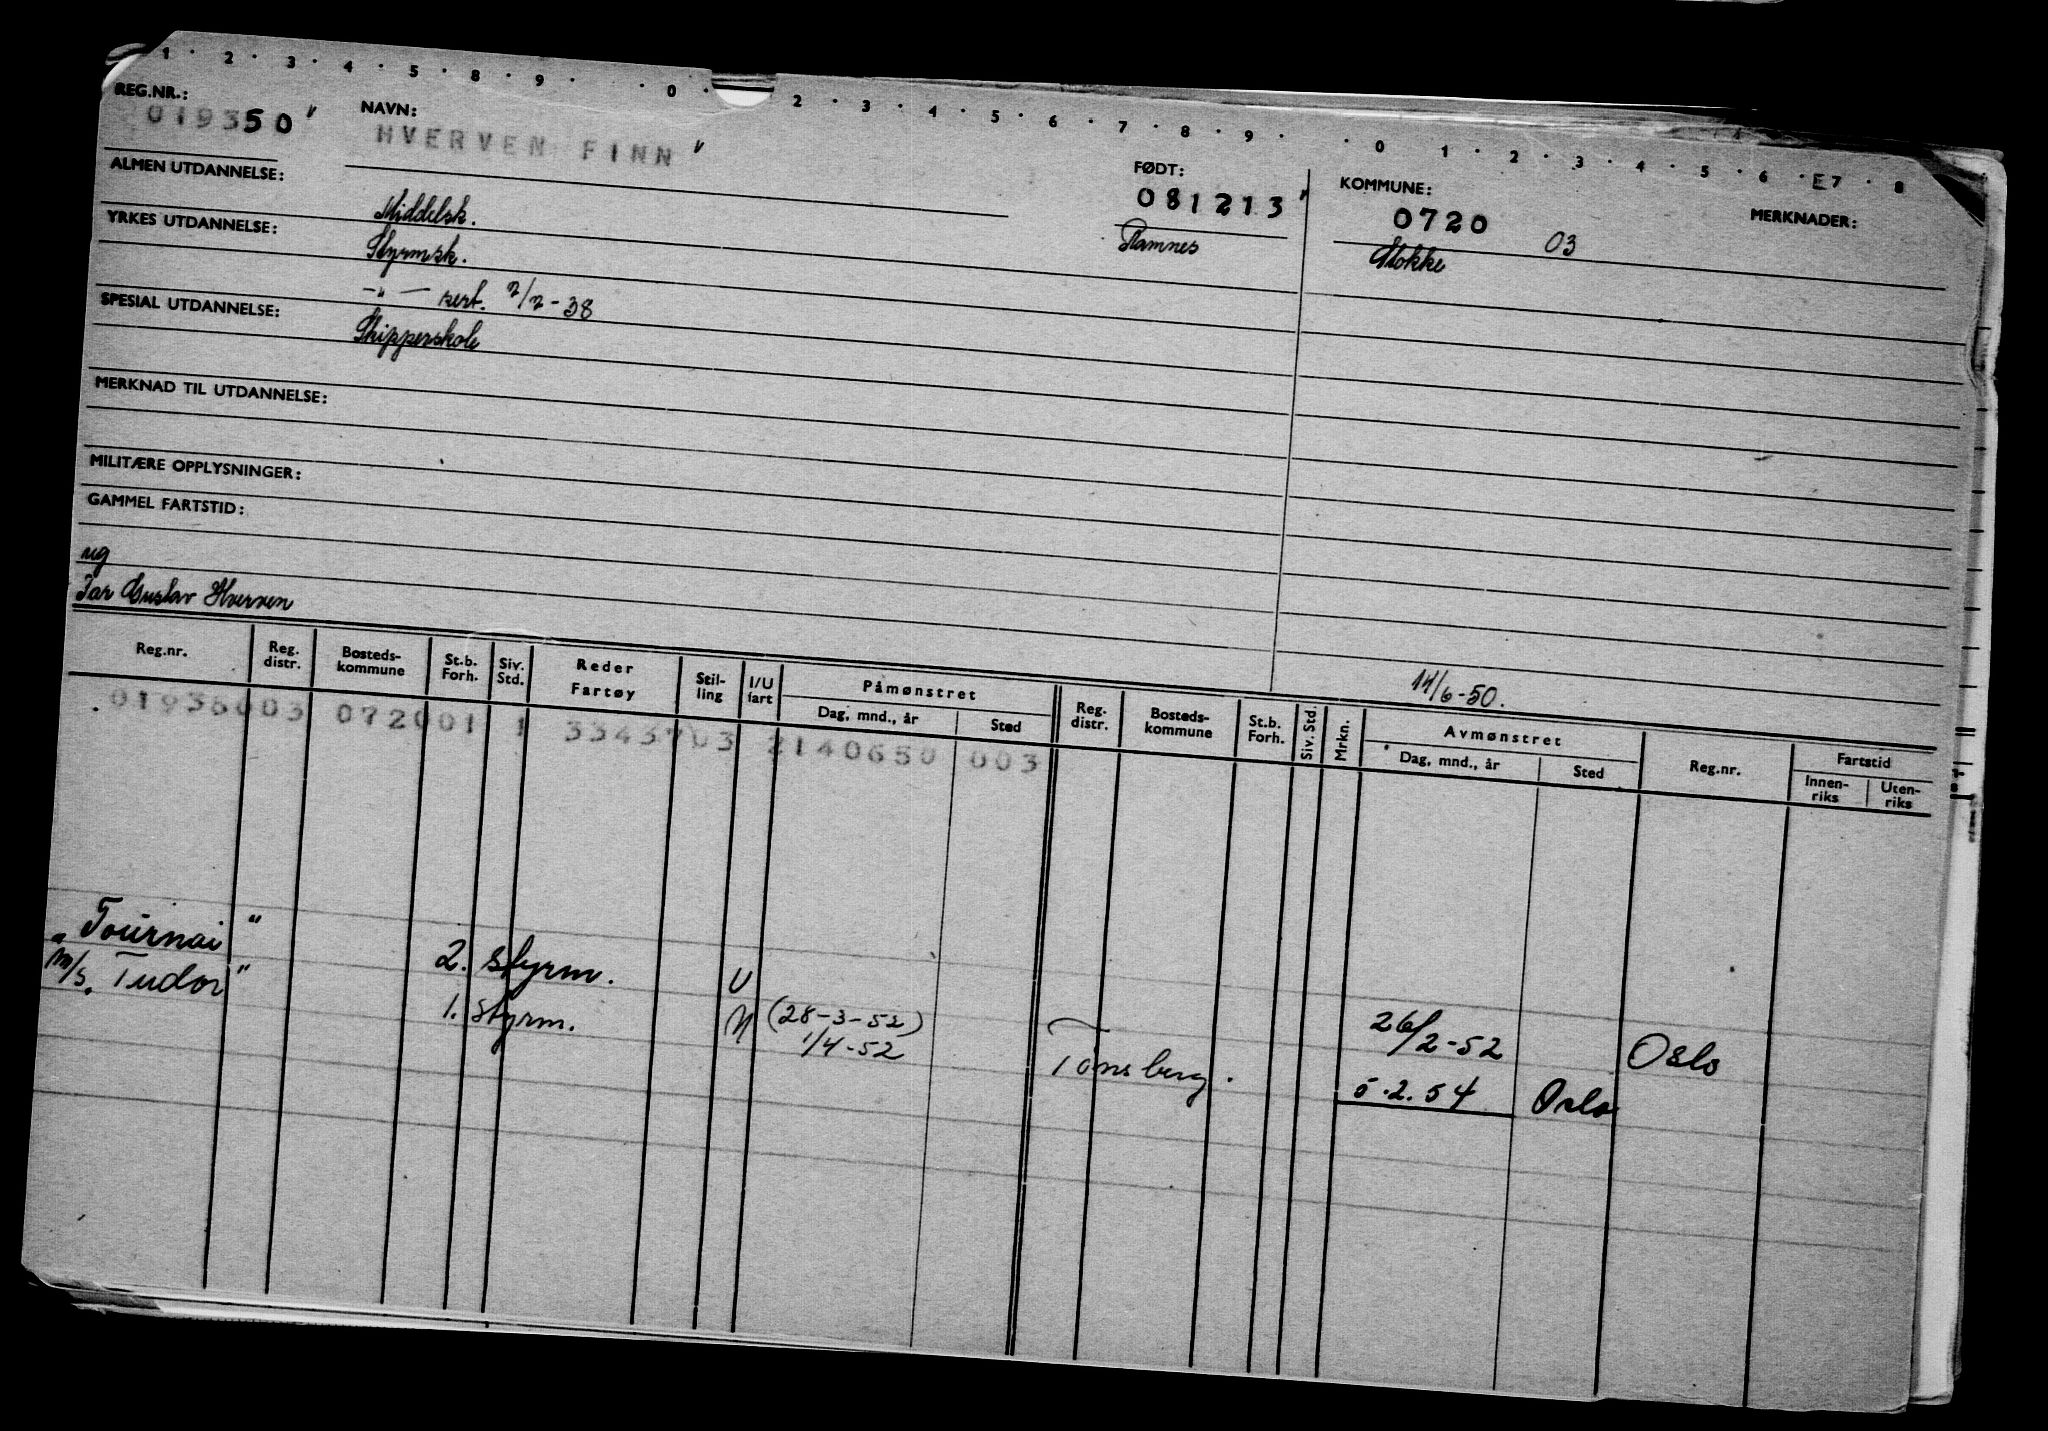 1 · 2 · 3 · 4 · 5 · 8 · 9 · · 0 · 2 · 3 · 4 · 5 · 6 · 7 · 8 · 9 · · 0 1 · 2 · 3 · 4 · 5 · 6 · E7 · 8
REG.NR.: NAVN: FØDT: KOMMUNE: MERKNADER:
019350 HVERVEN FINN 081213 0720 03
Ramnes Stokke
ALMEN UTDANNELSE: Middelsk.
YRKES UTDANNELSE: Styrmsk.
-"- sert. 2/2-38
SPESIAL UTDANNELSE: Skipperskole
MERKNAD TIL UTDANNELSE:
MILITÆRE OPPLYSNINGER:
GAMMEL FARTSTID:
ug
Far Gustav Hverven
14/6-50.
Reg.nr. Reg. distr. Bosteds-kommune St.b. Forh. Siv. Std. Reder Fartøy Stil-ling I/U fart Påmønstret Dag, mnd., år Sted Reg. distr. Bosteds-kommune St.b. Forh. Siv. Std. Mrkn. Avmønstret Dag, mnd., år Sted Reg.nr. Fartstid Innen-riks Uten-riks
072001 1 2140650 003
"Tournai" 2. styrm. U 26/2-52 Oslo
M/S. "Tudor" 1. styrm. (28-3-52)
1/4-52 Tønsberg. 5.2.54 Oslo